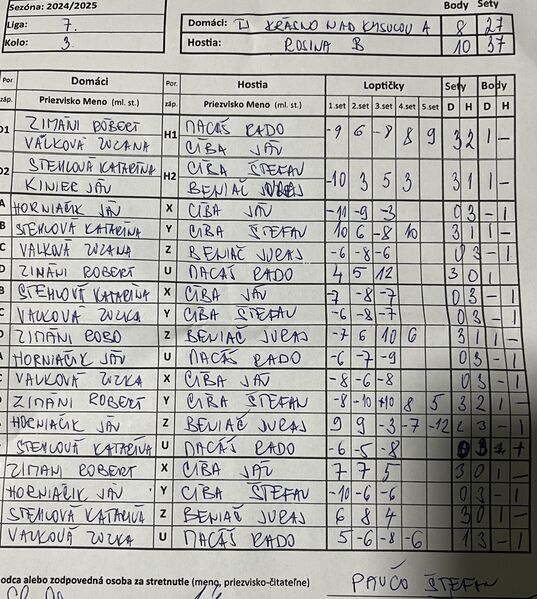 Sezóna: 2024/2025 Body Sety
Liga: 7. Domáci: TJ KRÁSNO NAD KYSUCOU A 8 27
Kolo: 3. Hostia: ROSINA B 10 37
Por. Domáci Por. Hostia Loptičky Sety Body
záp. Priezvisko Meno (ml. st.) záp. Priezvisko Meno (ml. st.) 1.set 2.set 3.set 4.set 5.set D H D H
D1 ZIMÁNI RÓBERT H1 MACÁŠ RADO -9 6 -8 8 9 3 2 1 -
VALKOVÁ ZUZANA CÍBA JÁN
D2 STEHLOVÁ KATARÍNA H2 CÍBA ŠTEFAN -10 3 5 3 3 1 1 -
KINIER JÁN BENIAČ JURAJ
A HORNIAČIK JÁN X CÍBA JÁN -11 -9 -3 0 3 - 1
B STEHLOVÁ KATARÍNA Y CÍBA ŠTEFAN 10 6 -8 10 3 1 1 -
C VALKOVÁ ZUZANA Z BENIAČ JURAJ -6 -8 -6 0 3 - 1
D ZIMÁNI ROBERT U MACÁŠ RADO 4 5 12 3 0 1
B STEHLOVÁ KATARÍNA X CÍBA JÁN -7 -8 -7 0 3 - 1
C VALKOVÁ ZUZKA Y CÍBA ŠTEFAN -6 -8 -7 0 3 - 1
D ZIMÁNI ROBO Z BENIAČ JURAJ -7 6 10 6 3 1 1 -
A HORNIAČIK JÁN U MACÁŠ RADO -6 -7 -9 0 3 - 1
C VALKOVÁ ZUZKA X CÍBA JÁN -8 -6 -8 0 3 - 1
D ZIMÁNI ROBERT Y CÍBA ŠTEFAN -8 -10 +10 8 5 3 2 1 -
HORNIAČIK JÁN Z BENIAČ JURAJ 9 9 -3 -7 -12 2 3 - 1
STEHLOVÁ KATARÍNA U MACÁŠ RADO -6 -5 -8 0 3
ZIMÁNI ROBERT X CÍBA JÁN 7 7 5 3 0 1 -
HORNIAČIK JÁN Y CÍBA ŠTEFAN -10 -6 -6 0 3 - 1
STEHLOVÁ KATARÍNA Z BENIAČ JURAJ 6 8 4 3 0 1 -
VALKOVÁ ZUZKA U MACÁŠ RADO 5 -6 -8 -6 1 3 - 1
odca alebo zodpovedná osoba za stretnutie (meno, priezvisko-čitateľne) PAVČO ŠTEFAN